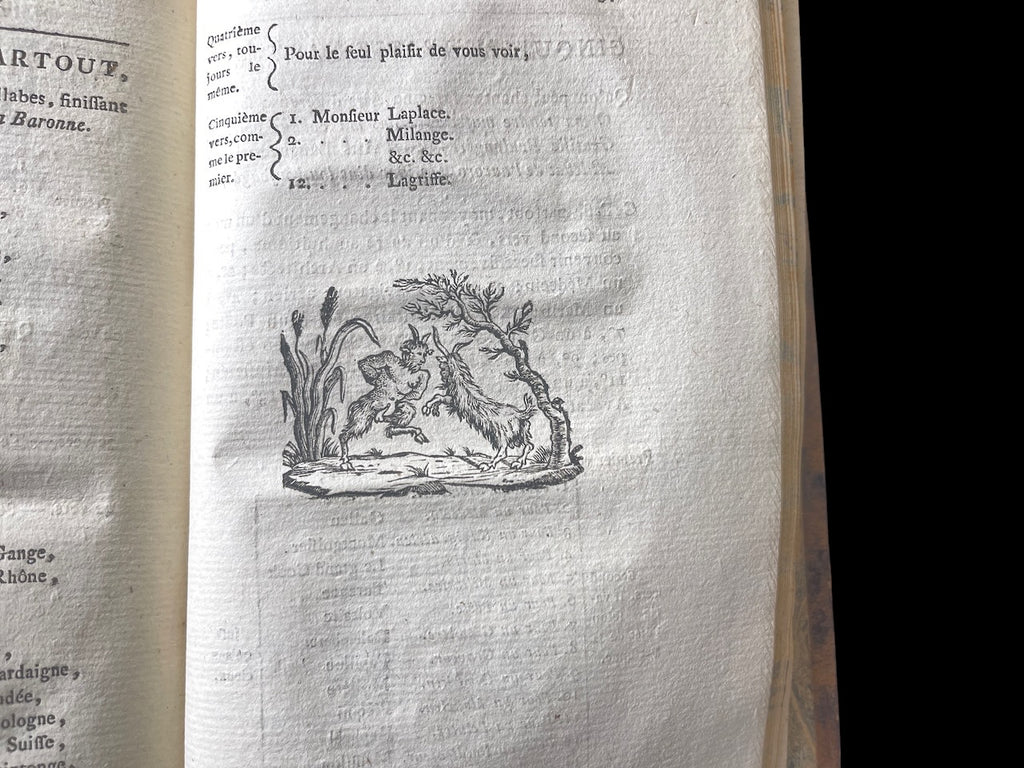 ARTOUT,
llabes, finiſſant
a Baronne.
Gange,
Rhône,
ardaigne,
ologne,
Suiſſe,
Quatrième
vers, tou-
jours le
même.
Pour le ſeul plaiſir de vous voir,
Cinquième
vers, com-
me le pre-
mier.
1. Monſieur Laplace.
2. . . . Milange.
&c. &c.
12. . . . Lagriffe.